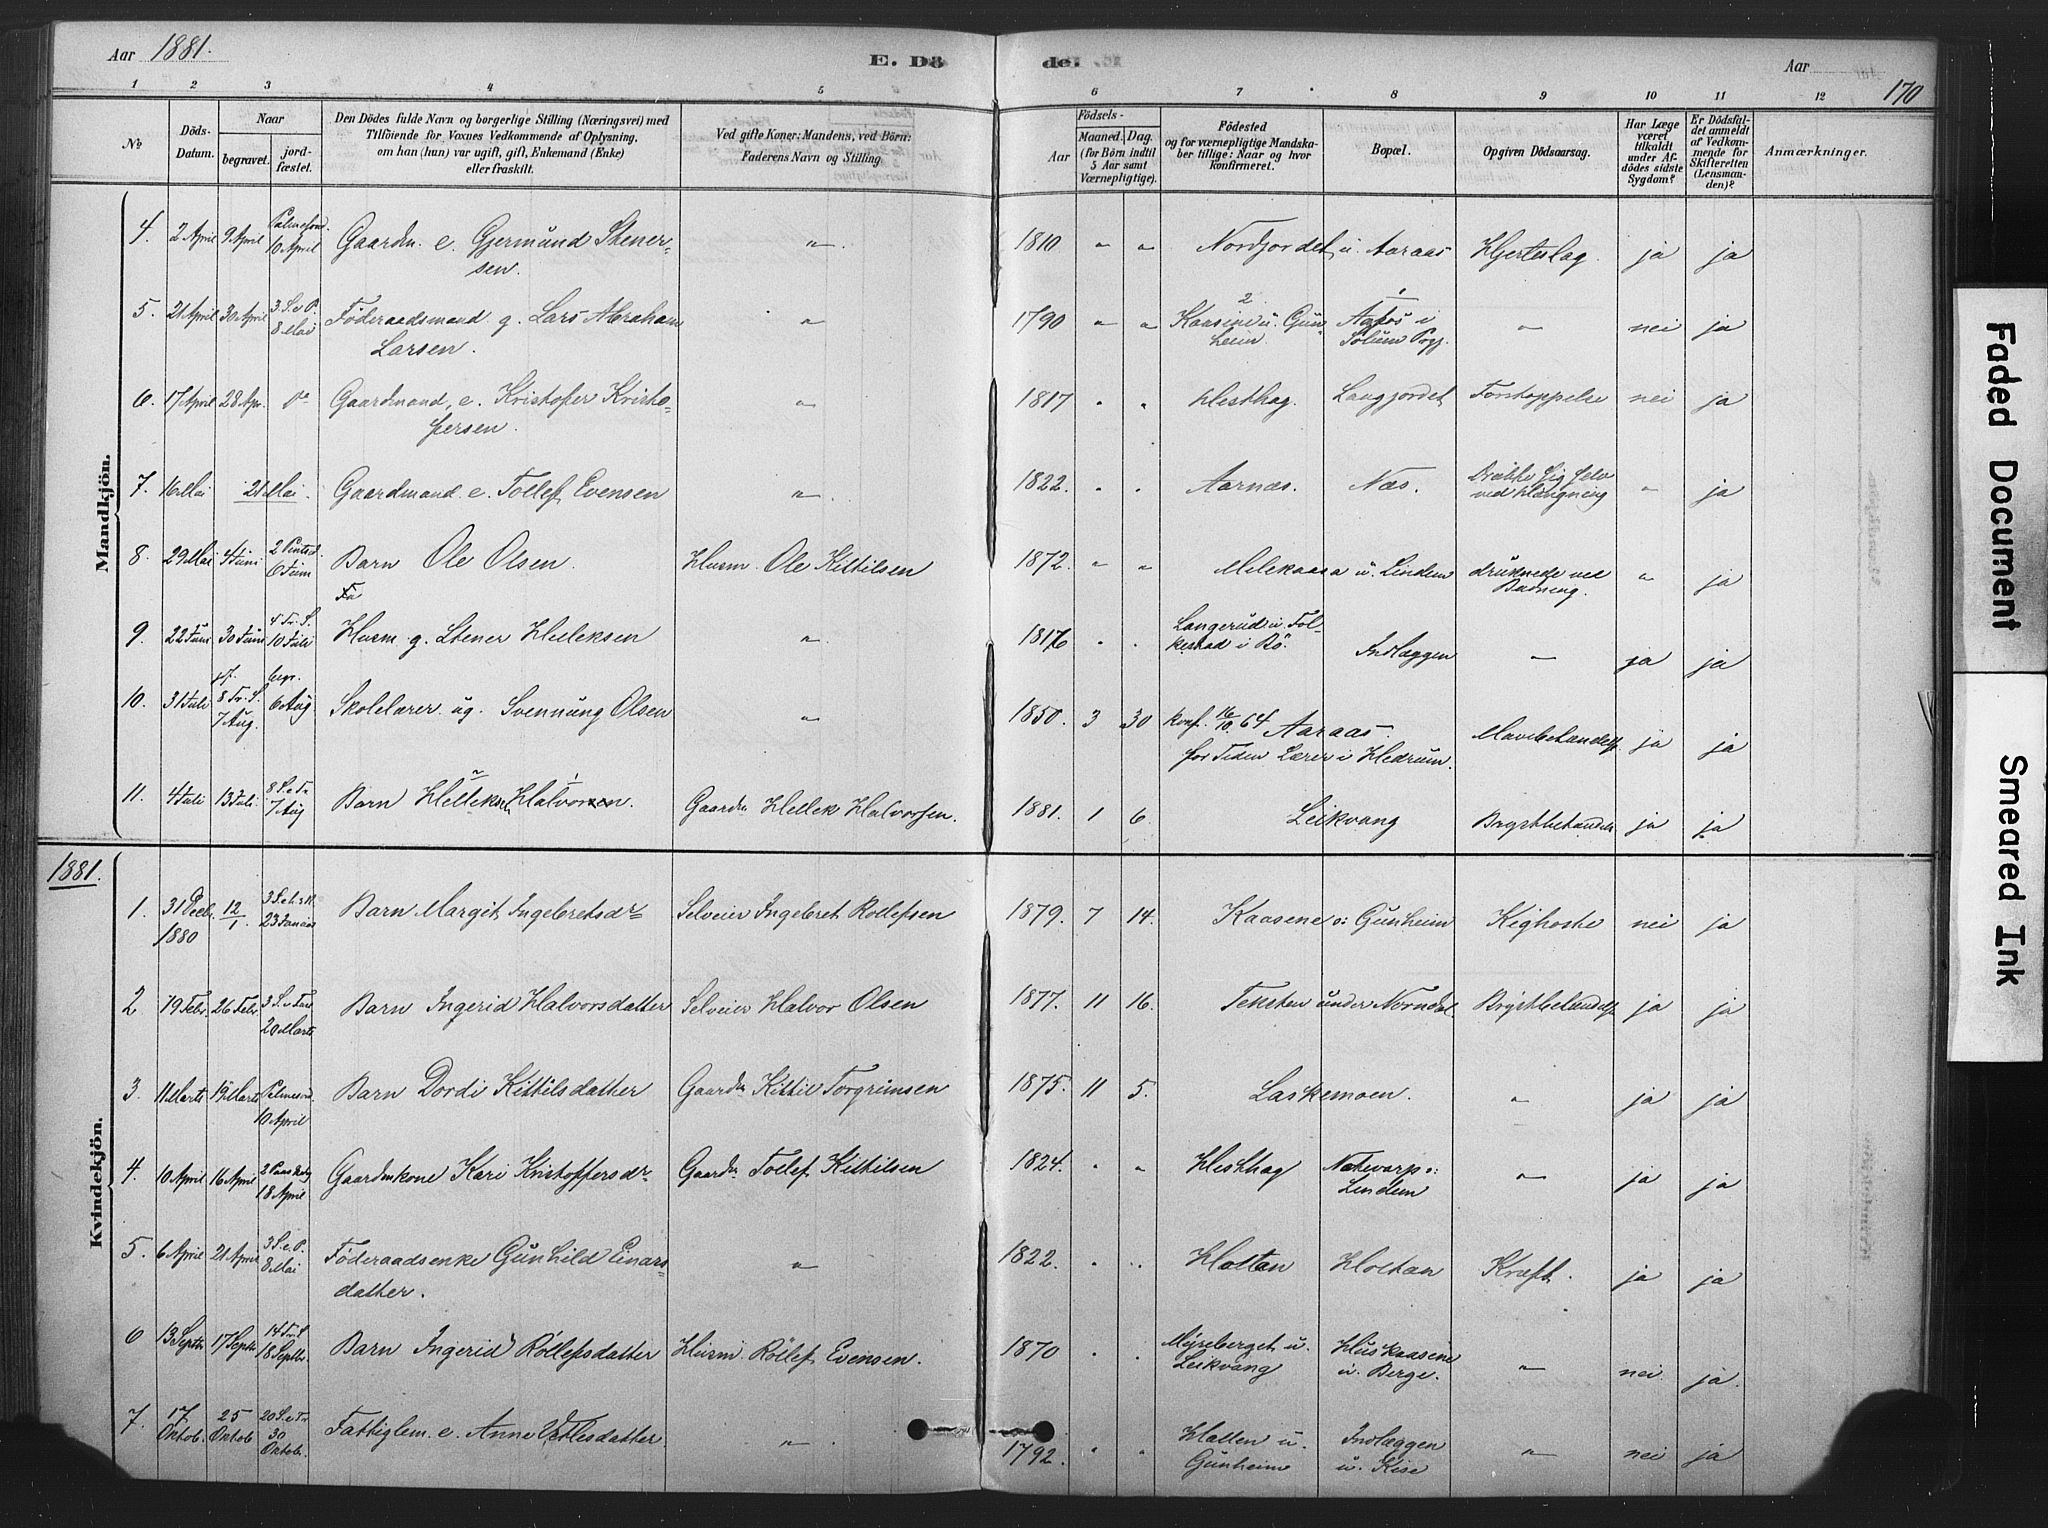 Aar 1881.
E. Dö
de.
Aar
170
1 2 3 4 5 6 7 8 9 10 11 12
No
Döds-
Datum.
Naar
begravet.
jord-
fæstet.
Den Dödes fulde Navn og borgerlige Stilling (Næringsvei) med
Tilföiende for Voxnes Vedkommende af Oplysning,
om han (hun) var ugift, gift, Enkemand (Enke)
eller fraskilt.
Ved gifte Koner: Mandens, ved Börn:
Faderens Navn og Stilling
Födsels-
Aar
Maaned. Dag.
(for Börn indtil
5 Aar samt
Værnepligtige).
Födested
og for værnepligtige Mandska-
ber tillige: Naar og hvor
konfirmeret.
Bopæl.
Opgiven Dödsaarsag.
Har Læge
været
tilkaldt
under Af-
dödes sidste
Sygdom?
Er Dödsfal-
det anmeldt
af Vedkom-
mende for
Skifteretten
(Lensman-
den)?
Anmærkninger.
Mandkjön.
4. 2 April 9 April 10 April Gaardm. e. Gjermund Stener-
sen. " 1810 " " Nordjordet u. Aaraas Hjerteslag. ja ja
5. 21 April 30 April 3. S. e. P. 8 Mai Föderaadsmand g. Lars Abraham
Larsen. " 1790 " " Kaasine u. Gun-
heim. i
Solum Pgj. " nei ja
6. 17 April 28 Apr. do Gaardmand, e. Kristofer Kristo-
fersen. " 1817 " " Hesthag. Langjordet Forstoppelse nei ja
7. 16 Mai 21 Mai. Gaardmand e. Tollef Evensen " 1822. " " Aarnæs. Næs. Dræbte sig selv
ved Hængning " ja
8. 29 Mai 4 Juni 2 Pintsed. 6 Juni Barn Ole Olsen. Husm. Ole Kittilsen 1872. " " Melekaasa u. Lindem druknede ved
Badning. " ja
9. 22 Juni 30 Juni 4 Tr. S. 10 Juli Husm. g. Stener Helleksen " 1817 " " Langerud u. Fol-
kestad i Bö. Indlæggen " ja ja
10. 31 Juli jf. 8 Tr. S. 7 Aug. begr. 6 Aug. Skolelærer ug. Svennung Olsen " 1850. 3 30 konf. 16/10 64 Aaraas.
for Tiden Lærer i Hedrum. ja ja
11. 4 Juli 13 Juli 7 Aug Barn Hellek Halvorsen. Gaardm Hellek Halvorsen. 1881. 1 6. Leikvang ja ja
1881.
Kvindekjön.
1. 31 Decb. 1880 12/1 23 Januar Barn Margit Ingebretsdr Selveier Ingebret Rollefsen 1879. 7 14. Kaasene u: Gunheim Kighoste nei ja
2 19 Febr. 26 Febr 3 S. e. Fast 20 Marts Barn Ingerid Halvorsdatter Selveier Halvor Olsen 1877. 11 16. under ja ja
3. 11 Marts 19 Marts Palmesønd. 10 April Barn Dordi Kittilsdatter Gaardm Kittil Torgrimsen 1875. 11 5. Laskemoen. " ja ja
4. 10 April 16 April 2 Paaskedag 18 April Gaardmkone Kari Kristoffersdr Gaardm Tollef Kittilsen 1824. " " Hesthag u:
Lindem " ja ja
5. 6 April 21 April 3 S. e. P. 8 Mai Föderaadsenke Gunhild Einars-
datter. " 1822. " " Hottan Hottan Kræft. ja ja
6 13 Septbr 17 Septbr 14 Tr. S. 18 Septbr. Barn Ingerid Rollefsdatter Husm Rollef Evensen. 1870 " " Myreberget u.
Leikvang Huskaasine
u. Berge. " nei ja.
7. 17 Oktob. 25 Oktob 20 S. e. Tr 30 Oktob. Fattiglem. e. Anne Vetlesdatter " 1792. " " Hallen u.
Gunheim Indlæggen
u. Kise " nei ja
Faded Document
Smeared Ink